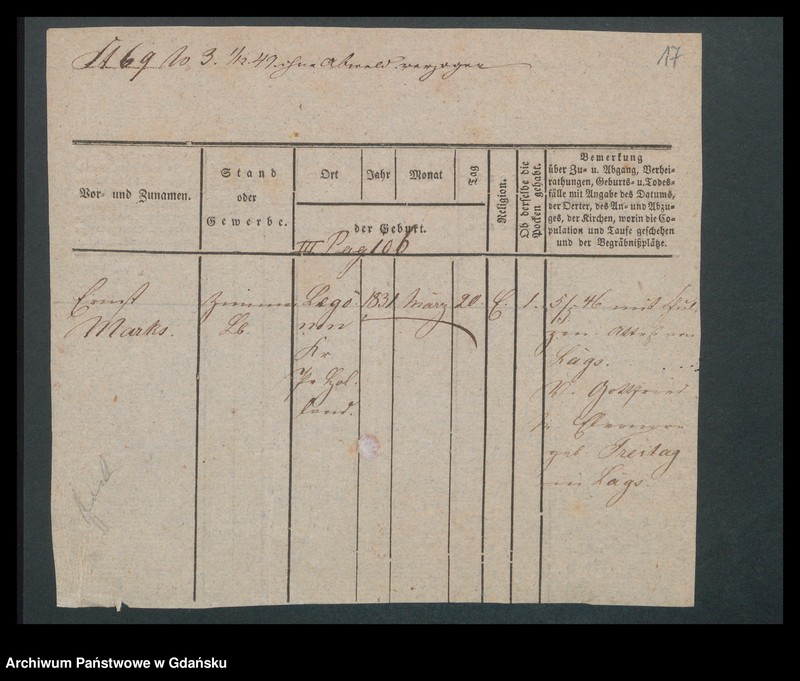 A 69 No 3. 1/12.47. ohne Abmeld. verzogen
17
Vor- und Zunamen.
Stand
oder
Gewerbe.
Ort
Jahr
Monat
Tag
der Geburt.
Religion.
Ob derselbe die
Pocken gehabt.
Bemerkung
über Zu- u. Abgang, Verhei-
rathungen, Geburts- u. Todes-
fälle mit Angabe des Datums,
der Oerter, des An- und Abzu-
ges, der Kirchen, worin die Co-
pulation und Taufe geschehen
und der Begräbnißplätze.
III Pag 106
Ernst
Marks.
Zimmer
Lb.
Kr
Pr Hol-
land.
1831
März
20
E.
1.
46 mit
Attest von
Lägs.
V. Gottfried
geb. Freitag
in Lägs.
Archiwum Państwowe w Gdańsku